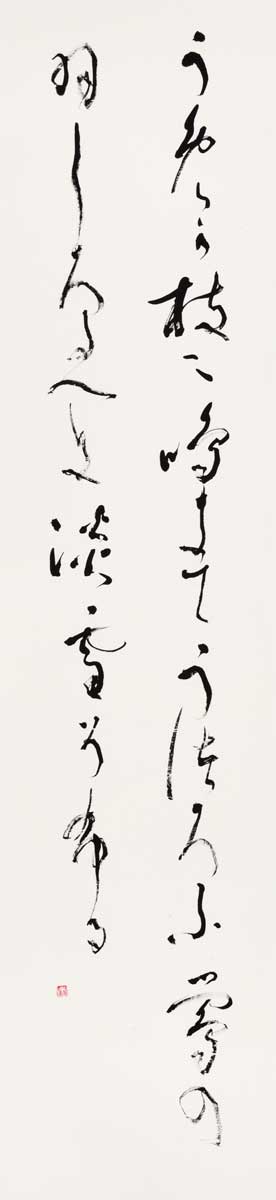 うめか枝に鳴きてうつろふ鶯の
羽しろたへに淡雪そふる